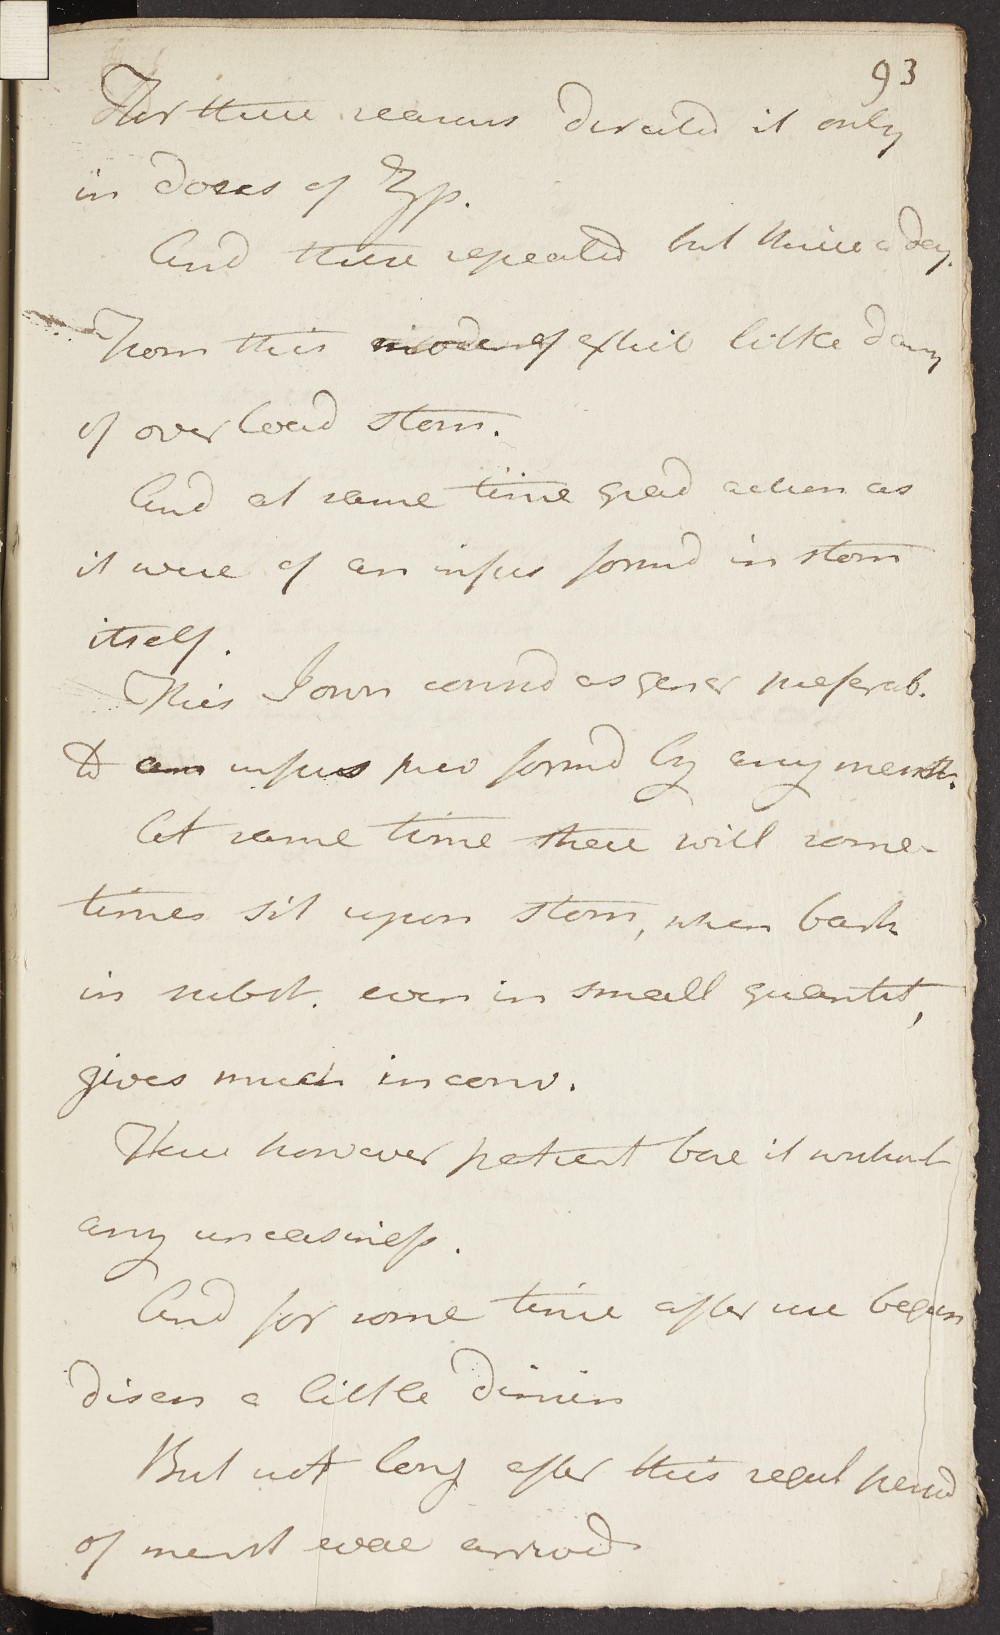 93
For these reasons directed it only
in doses of ʒſs.
And these repeated but thrice a day.
From this mode of exhib little dang
of over load stom.
And at same time great action as
it were of an infus formd in stom
itself.
This I own consid as gener preferab.
to an infus prev formd by any menst.
At same time there will some-
times sit upon stom, when bark
in subst. even in small quantit,
gives much inconv.
Here however patient bore it without
any uneasiness.
And for some time after use began
diseas a little dimin
But not long after this regul period
of menst evac arrivd